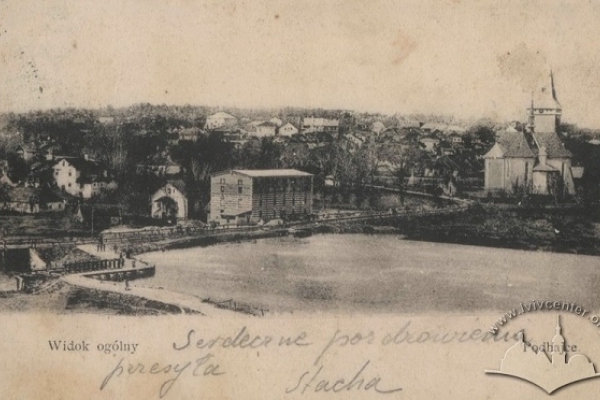 Widok ogólny
Podhajce
Serdeczne pozdrowienia
przesyła Stacha
www.lvivcenter.org